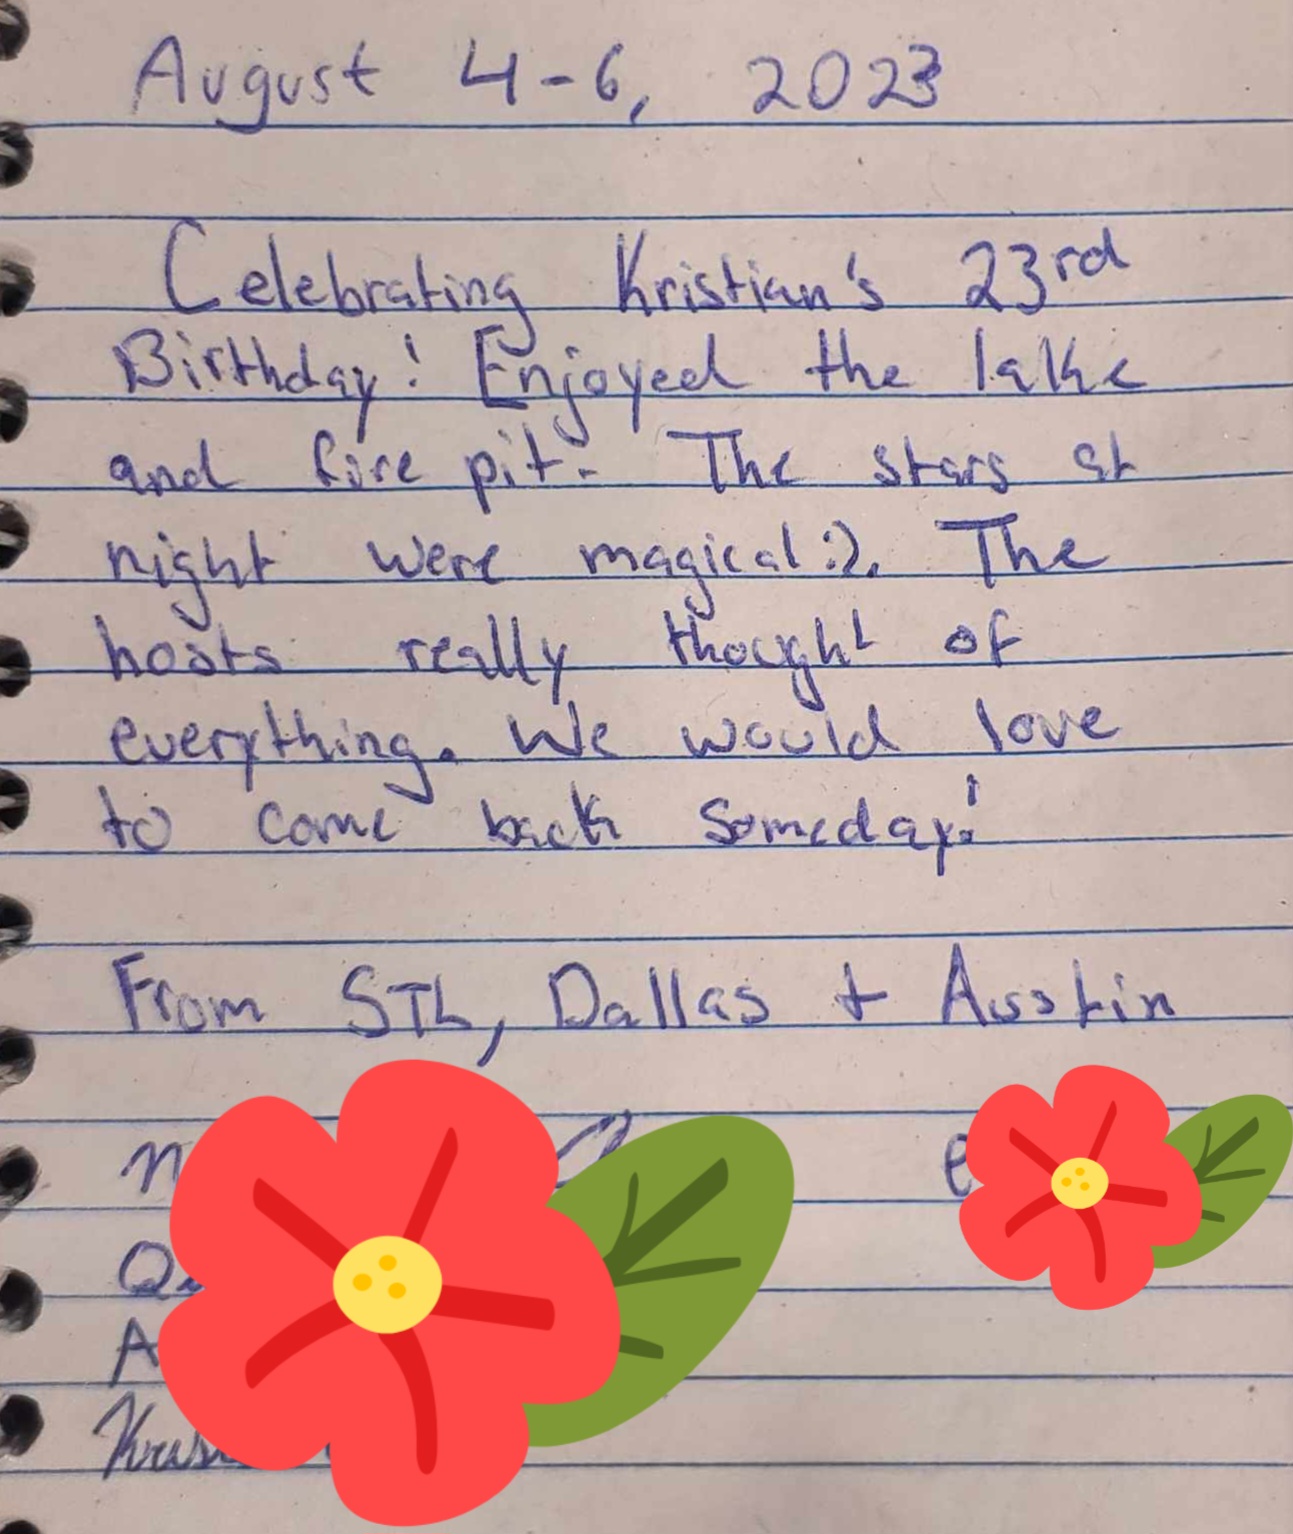 August 4-6, 2023
Celebrating Kristian's 23rd
Birthday! Enjoyed the lake
and fire pit. The stars at
night were magical:). The
hosts really thought of
everything. We would love
to come back someday!
From STL, Dallas + Austin